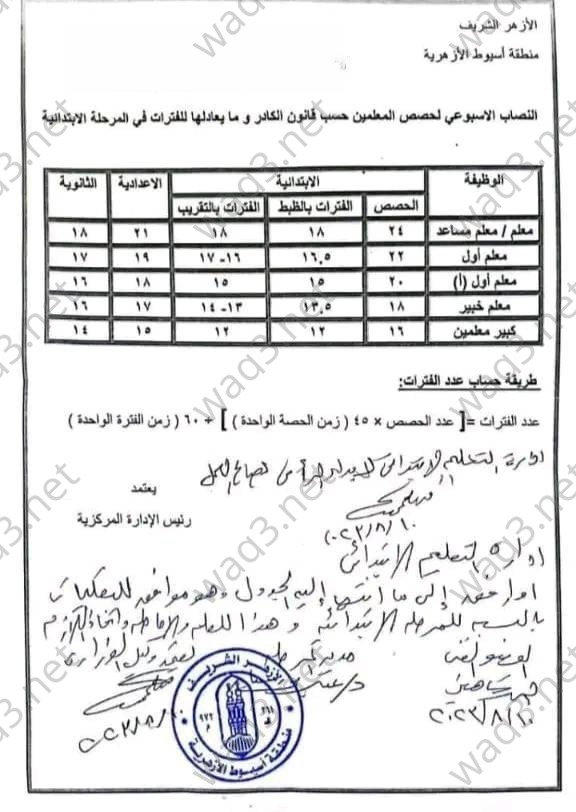 الأزهر الشريف
منطقة أسيوط الأزهرية
النصاب الاسبوعي لحصص المعلمين حسب قانون الكادر و ما يعادلها للفترات في المرحلة الابتدائية
الوظيفة الابتدائية الاعدادية الثانوية
الحصص الفترات بالظبط الفترات بالتقريب
معلم / معلم مساعد ٢٤ ١٨ ١٨ ٢١ ١٨
معلم أول ٢٢ ١٦,٥ ١٦-١٧ ١٩ ١٧
معلم أول (أ) ٢٠ ١٥ ١٥ ١٨ ١٦
معلم خبير ١٨ ١٣,٥ ١٣-١٤ ١٧ ١٦
كبير معلمين ١٦ ١٢ ١٢ ١٥ ١٤
طريقة حساب عدد الفترات:
عدد الفترات =[ عدد الحصص × ٤٥ ( زمن الحصة الواحدة ) ] ÷ ٦٠ ( زمن الفترة الواحدة )
ادارة التعليم الابتدائى
يعتمد
رئيس الإدارة المركزية
٢٠٢٣/٨/١٠
ادارة التعليم الابتدائى
أوافق إلى ما انتهى إليه الجدول وهو موافق
بالنسبة للمرحلة الابتدائية و هذا للعلم والإحاطة واتخاذ اللازم
شاهين
٢٠٢٣/٨/١٠
٢٠٢٣/٨/١٠
الأزهر الشريف
٣٦١ ٩٧٢
منطقة أسيوط الأزهرية
waq3.net